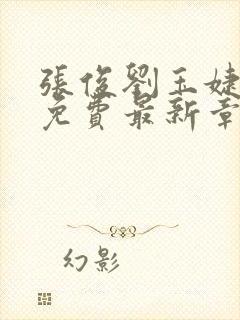 張俊劉玉婕
免費最新章
幻影